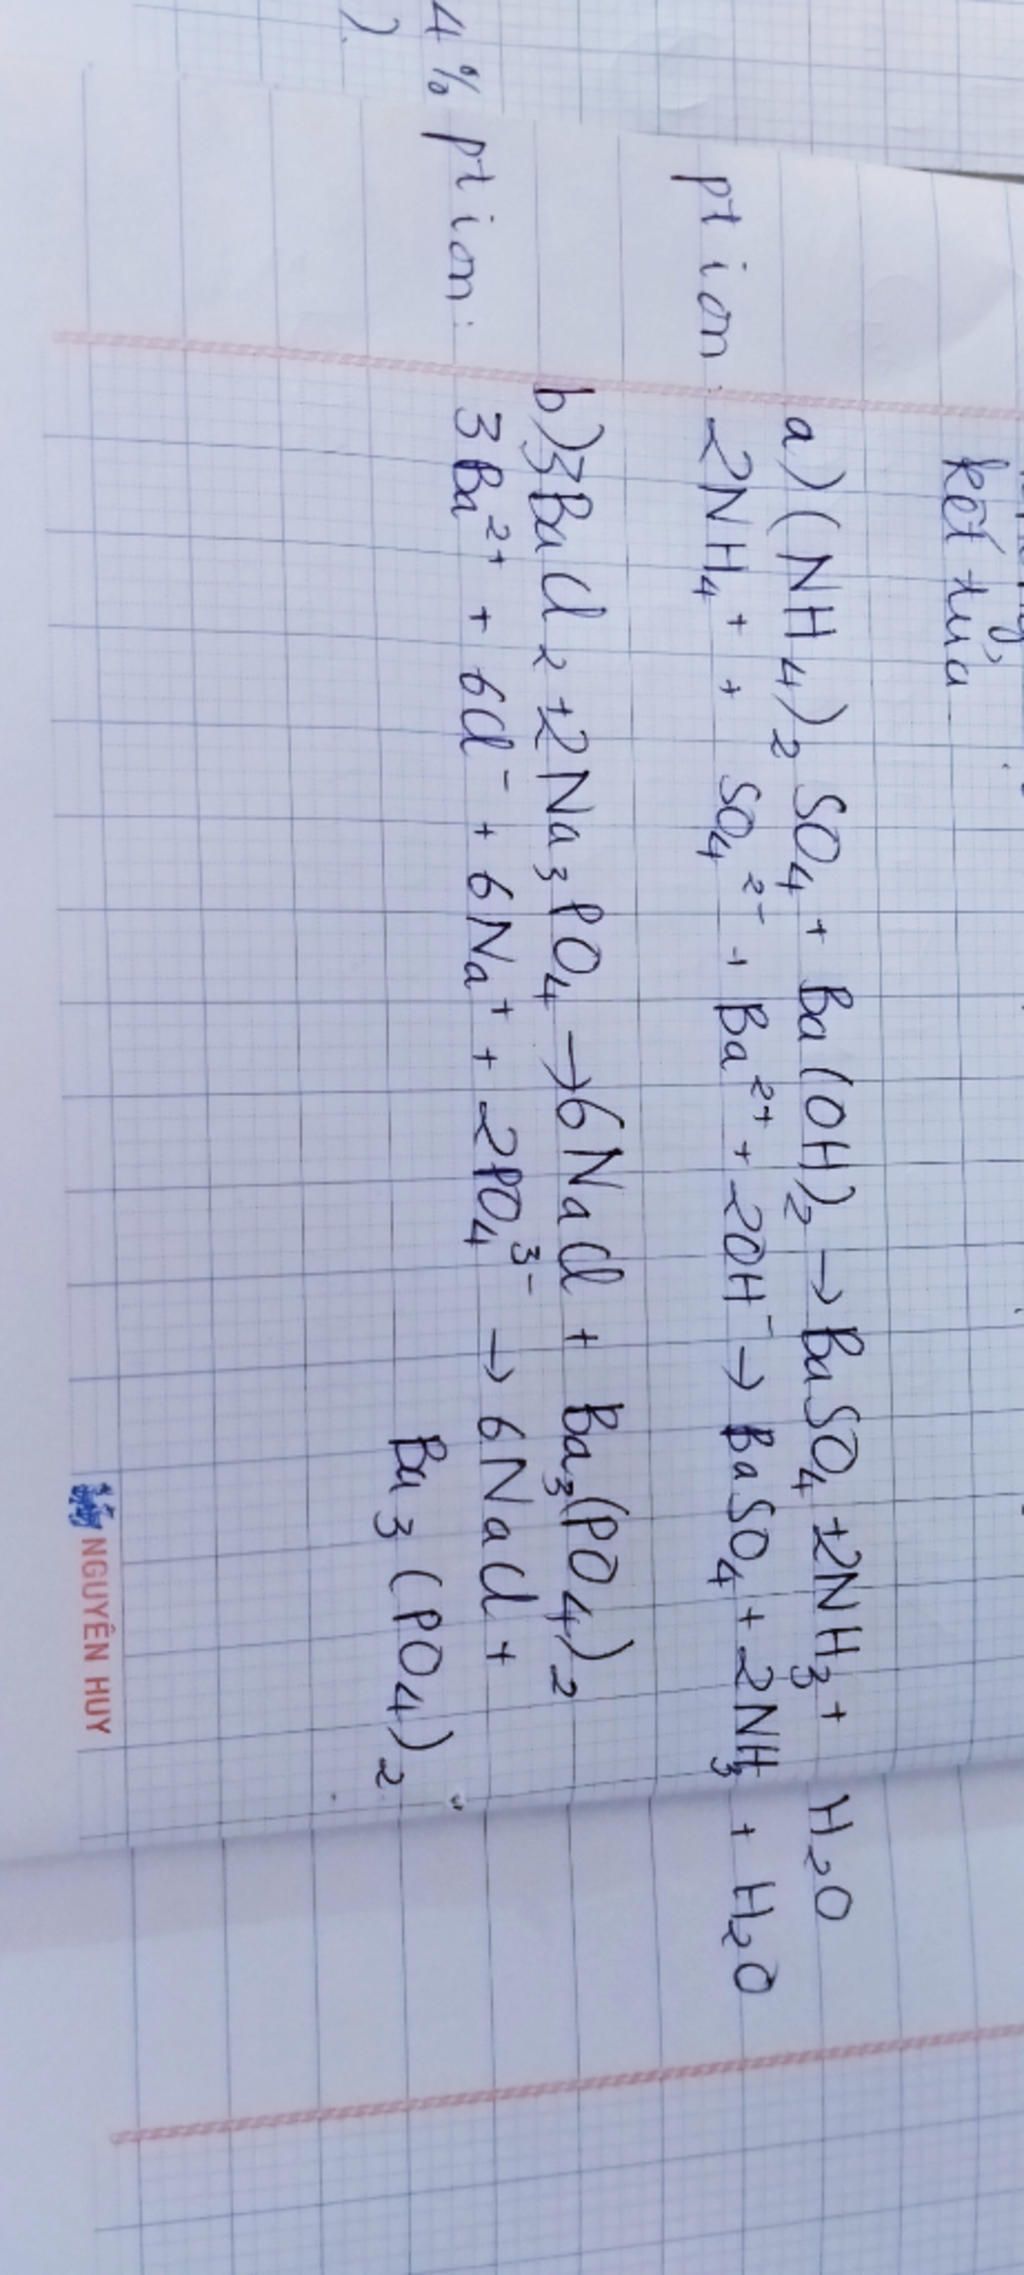 kết tủa
a) (NH4)2 SO4 + Ba(OH)2 → BaSO4 + 2NH3 + H2O
pt ion: 2NH4+ + SO4 2- + Ba2+ + 2OH- → BaSO4 + 2NH3 + H2O
b) 3BaCl2 + 2Na3PO4 → 6NaCl + Ba3(PO4)2
4% pt ion: 3Ba2+ + 6Cl- + 6Na+ + 2PO4 3- → 6NaCl +
) Ba3(PO4)2
NGUYÊN HUY